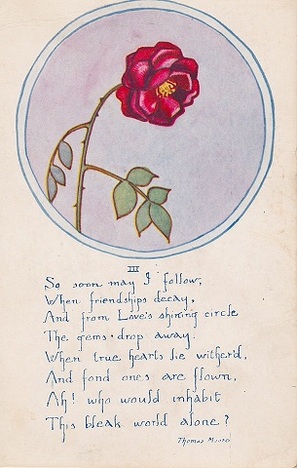 III
So soon may I follow,
When friendships decay,
And from Love's shining circle
The gems drop away.
When true hearts lie wither'd,
And fond ones are flown,
Ah! who would inhabit
This bleak world alone?
Thomas Moore